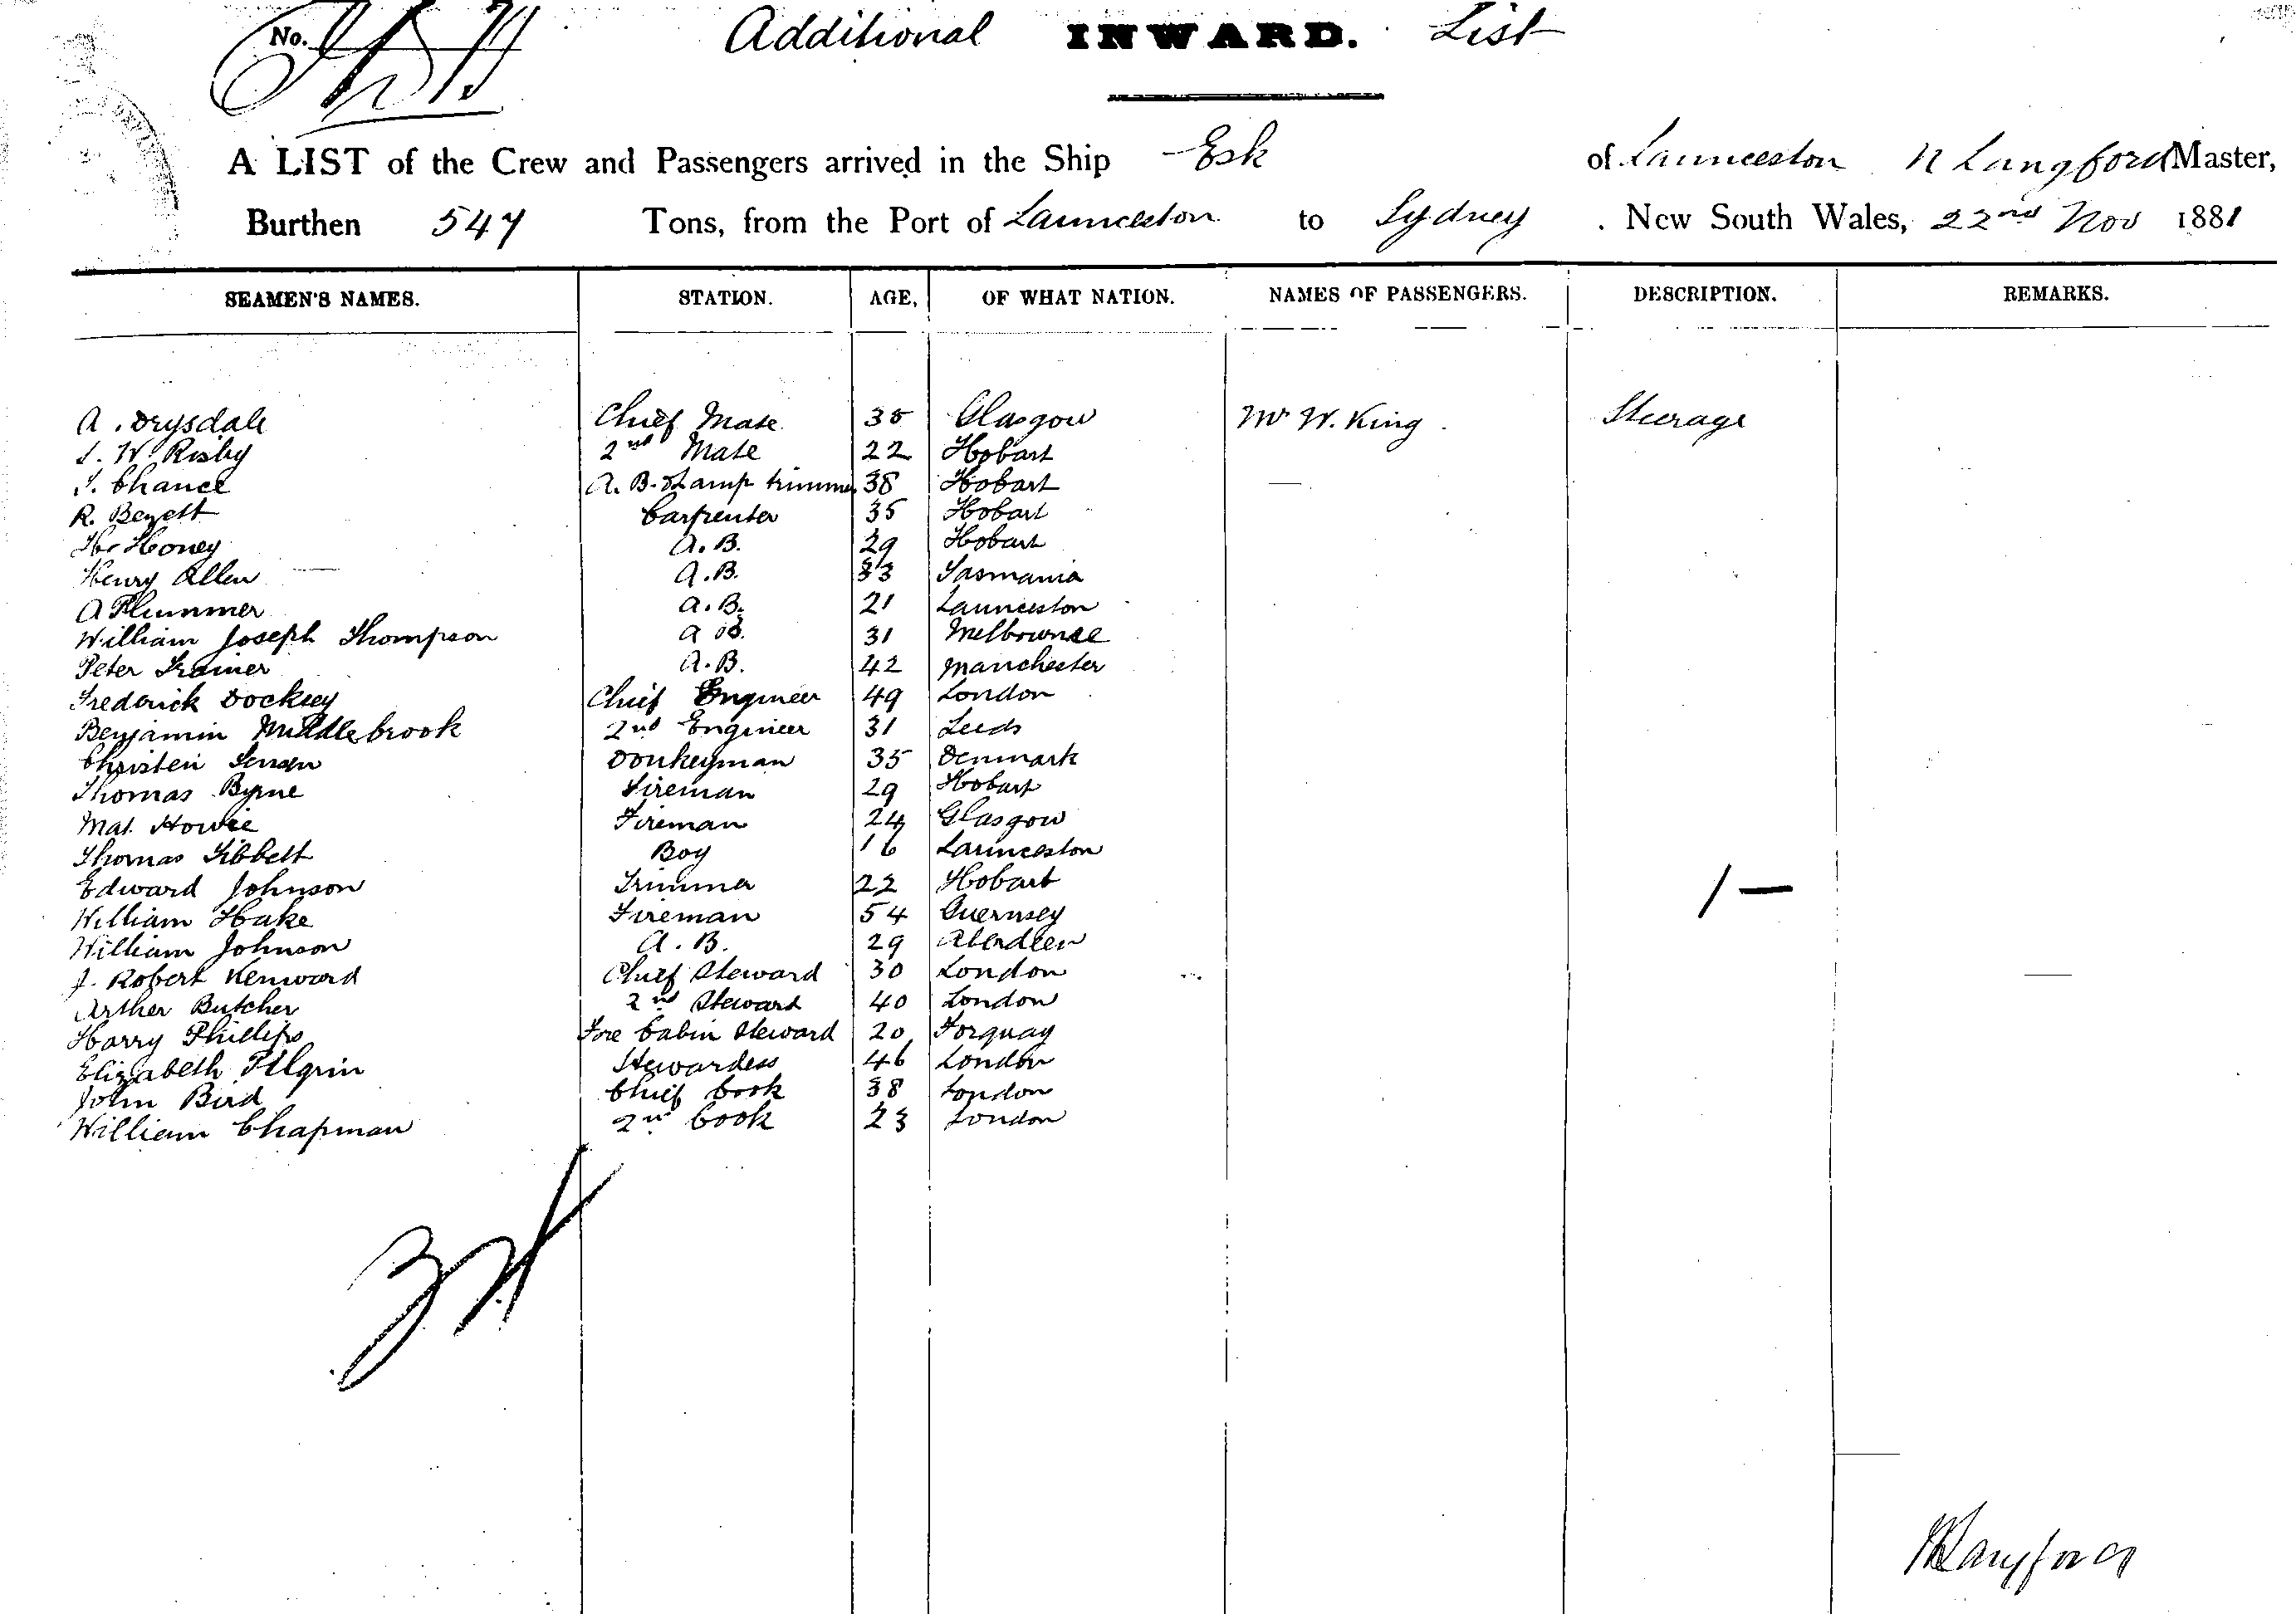 No.
Additional INWARD. List
A LIST of the Crew and Passengers arrived in the Ship Esk of Launceston N Langford Master,
Burthen 547 Tons, from the Port of Launceston to Sydney . New South Wales, 22nd Nov 1881
SEAMEN'S NAMES. STATION. AGE, OF WHAT NATION. NAMES OF PASSENGERS. DESCRIPTION. REMARKS.
A. Drysdale Chief Mate 35 Glasgow Mr W. King Steerage
W. Risby 2nd Mate 22 Hobart
Chance A. B. & Lamp trimmer 38 Hobart
R. Bezett Carpenter 35 Hobart
Honey A. B. 29 Hobart
Henry Allen A. B. 33 Tasmania
A Plummer A. B. 21 Launceston
William Joseph Thompson A B. 31 Melbourne
Peter Trainer A. B. 42 Manchester
Frederick Docksey Chief Engineer 49 London
Benjamin Middlebrook 2nd Engineer 31 Leeds
Christen Jensen Donkeyman 35 Denmark
Thomas Byrne Fireman 29 Hobart
Mat. Howie Fireman 24 Glasgow
Thomas Tibbett Boy 16 Launceston
Edward Johnson Trimmer 22 Hobart
William Hake Fireman 54 Guernsey
William Johnson A. B. 29 Aberdeen
J. Robert Kenward Chief Steward 30 London
Arther Butcher 2nd Steward 40 London
Harry Phillips Fore Cabin Steward 20 Torquay
Elizabeth Pilgrin Stewardess 46 London
John Bird Chief Cook 38 London
William Chapman 2nd Cook 23 London
1 —
N Langford